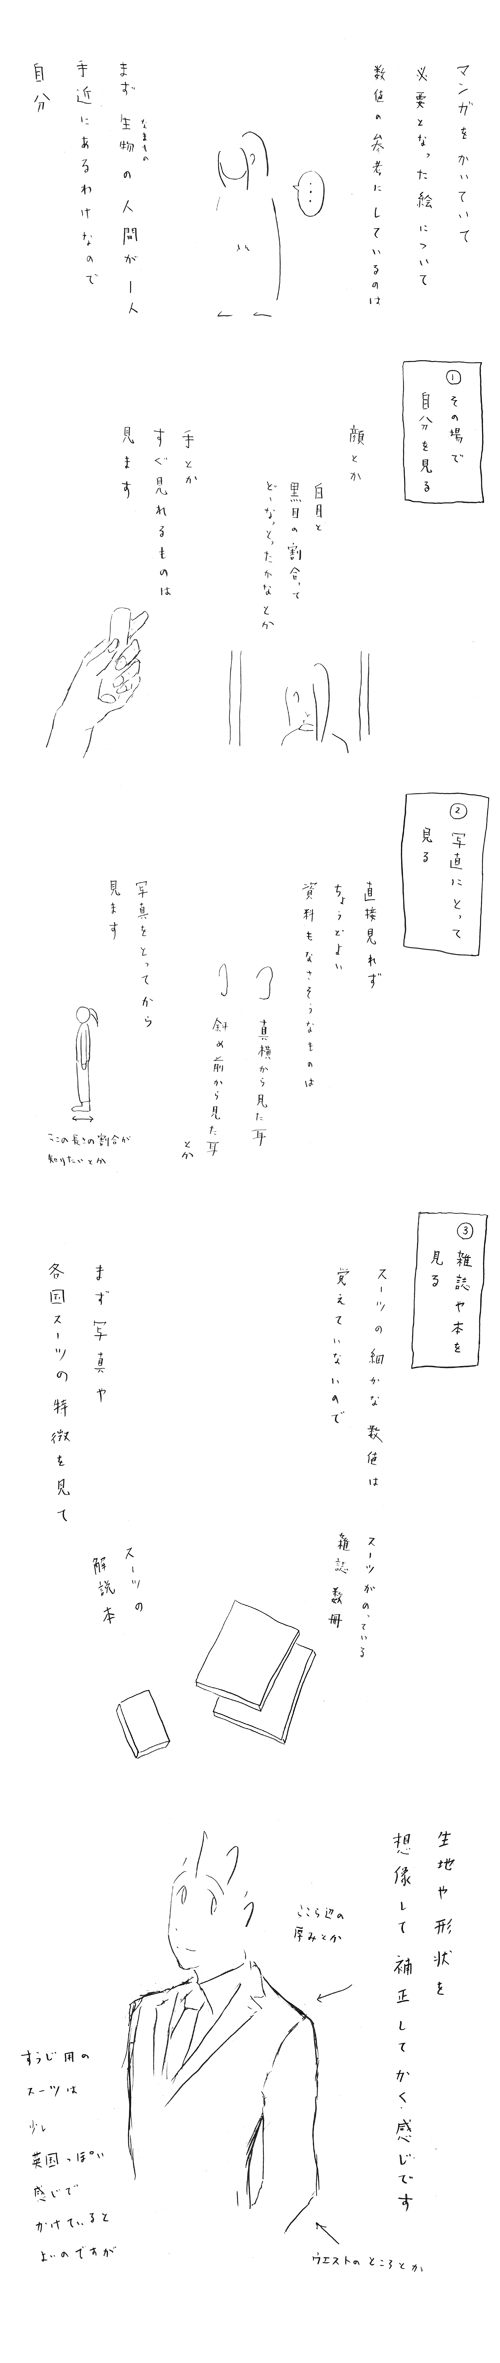 マンガをかいていて
必要となった絵について
数値の参考にしているのは
…
まず生物の人間が一人
なまもの
手近にあるわけなので
自分
①その場で
自分を見る
顔とか
白目と
黒目の割合って
どーなっとったかなとか
手とか
すぐ見れるものは
見ます
②写真にとって
見る
直接見れず
ちょうどよい
資料もなさそうなものは
真横から見た耳
斜め前から見た耳
とか
写真をとってから
見ます
ここの長さの割合が
知りたいとか
③雑誌や本を
見る
スーツの細かな数値は
覚えていないので
スーツがのっている
雑誌数冊
スーツの
解説本
まず写真や
各国スーツの特徴を見て
生地や形状を
想像して補正してかく感じです
ここら辺の
厚みとか
ウエストのところとか
すうじ用の
スーツは
少し
英国っぽい
感じで
かけていると
よいのですが